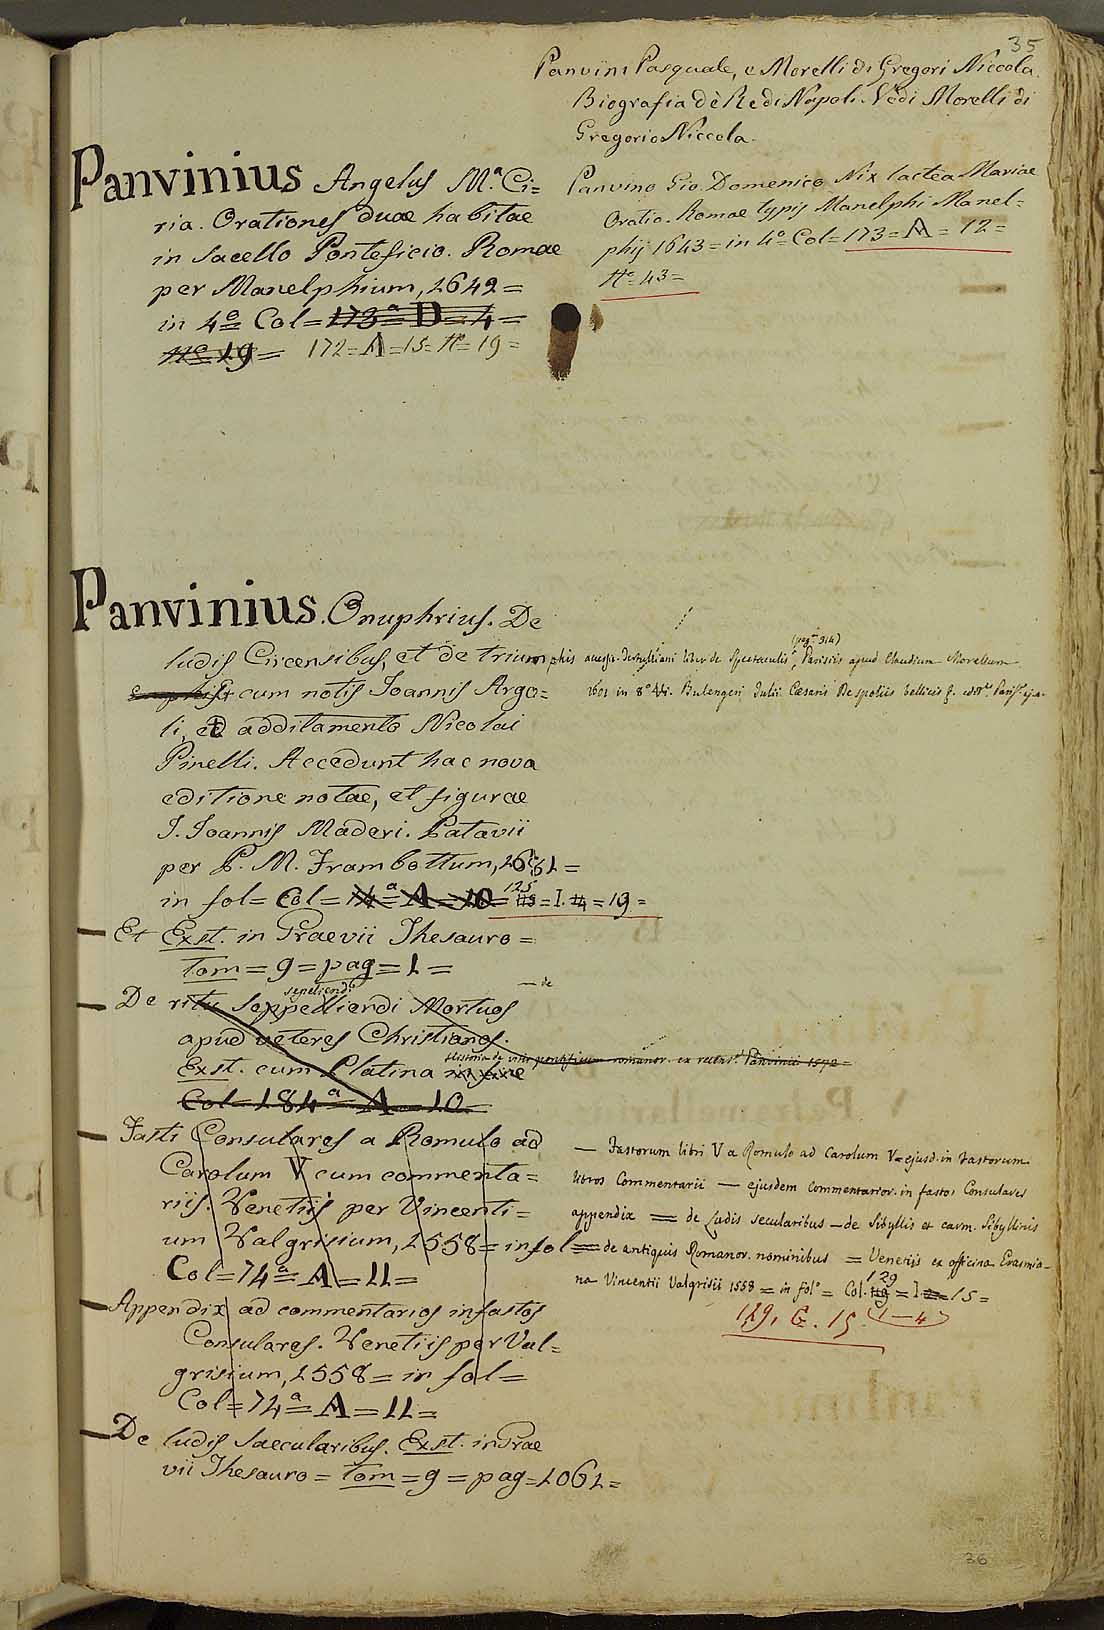 35
Panvini Pasquale, e Morelli di Gregori Niccola.
Biografia dè Re di Napoli. Vedi Morelli di
Gregorio Niccola.
Panvinius Angelus M.ª Ci=
ria. Orationes duae habitae
in sacello Pontificio. Romae
per Manelphium, 1642=
in 4º= Col=173ª=D=4=
Nº=19= 172=A=15=Nº=19=
Panvino Gio. Domenico Nix lactea Mariae
Oratio. Romae typis Manelphi Manel=
phij 1643=in 4º=Col=173=A=12=
Nº=43=
Panvinius. Onuphrius. De
ludis Circensibus, et de trium phis
et cum notis Joannis Argo=
li, et additamento Nicolai
Pinelli. Accedunt hac nova
editione notae, et figurae
J. Joannis Maderi. Patavii
per P. M. Frambottum, 1681=
in fol= Col=14ª=A=10= 125 =I.=19=
(pag.ª 314)
access. Tertulliani liber de Spectaculis, Parisiis apud Claudium Morellum
1601 in 8º Bulengeri Julii Caesaris De spoliis bellicis
Et Exst. in Graevii Thesauro=
tom=9=pag=1=
De ritu sepeliendi Mortuos
apud veteres Christianos.
Exst. cum Platina in fine
Historia de vitis pontificum romanor. ex recens. Panvinii 1572=
Col=184ª=A=10=
Fasti Consulares a Romulo ad
Carolum V cum commenta=
riis. Venetiis per Vincenti=
um Valgrisium, 1558=in fol=
Col=74ª=A=11=
Appendix ad commentarios in fastos
Consulares. Venetiis per Val=
grisium, 1558=in fol=
Col=74ª=A=11=
De ludis saecularibus. Exst. in Grae
vii Thesauro=tom=9=pag=1061=
— Fastorum libri V a Romulo ad Carolum V=ejusd. in Fastorum
libros Commentarii — ejusdem commentarior. in fastos Consulares
appendix = de Ludis secularibus — de Sibyllis et carm. Sibyllinis
= de antiquis Romanor. nominibus = Venetiis ex officina Erasmia=
na Vincentii Valgrisii 1558 = in folº = Col. 129 = I = 15=
129, G. 15 (1—4)
36